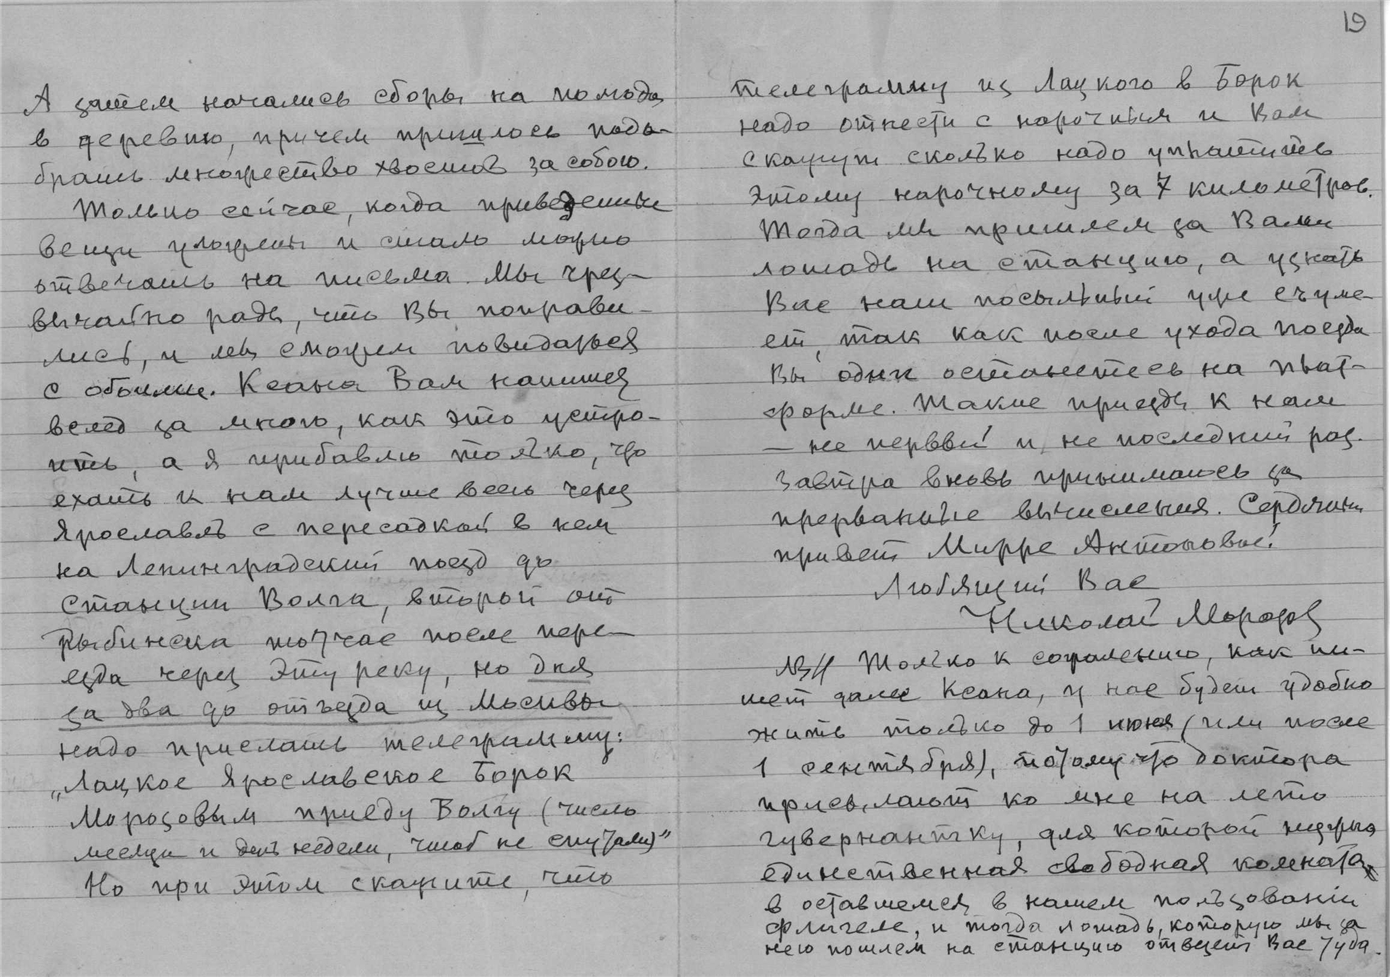 19
А затем начались сборы на полгода
в деревню, причем пришлось подо-
брать множество хвостов за собою.
Только сейчас, когда приведенные
вещи уложены и стало можно
отвечать на письма. Мы чрез-
вычайно рады, что Вы поправи-
лись, и мы сможем повидаться
с обоими. Ксана Вам напишет
вслед за мною, как это устро-
ить, а я прибавлю только, что
ехать к нам лучше всего через
Ярославль с пересадкой в нем
на Ленинградский поезд до
станции Волга, второй от
Рыбинска тотчас после пере-
езда через эту реку, но дня
за два до отъезда из Москвы
надо прислать телеграмму:
„Лацкое Ярославское Борок
Морозовым приеду Волгу (число
месяца и день недели, чтоб не спутали)"
Но при этом скажите, что
телеграмму из Лацкого в Борок
надо отнести с нарочным и Вам
скажут сколько надо уплатить
этому нарочному за 7 километров.
Тогда мы пришлем за Вами
лошадь на станцию, а узнать
Вас наш посыльный уже сумe-
ет, так как после ухода поезда
Вы одни останетесь на плат-
форме. Такие приезды к нам
— не первый и не последний раз.
Завтра вновь принимаюсь за
прерванные вычисления. Сердечный
привет Мирре Антоновне!
Любящий Вас
Николай Морозов
Только к сожалению, как пи-
шет далее Ксана, у нас будет удобно
жить только до 1 июня (или после
1 сентября), потому что доктора
присылают ко мне на лето
гувернантку, для которой нужна
единственная свободная комната,
в оставшемся в нашем пользовании
флигеле, и тогда лошадь, которую мы за
нею пошлем на станцию отвезет Вас туда.